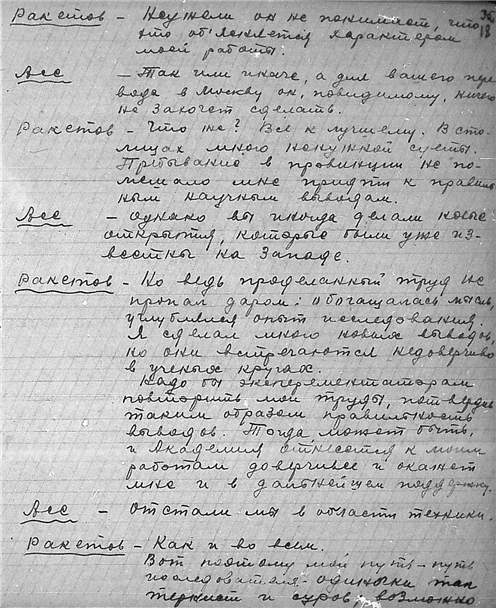 Ракетов - Неужели он не понимает, что
это объясняется характером
моей работы.
Асс - Так или иначе, а для вашего пере
вода в Москву он, повидимому, ничего
не захочет сделать.
Ракетов - Что же? Все к лучшему. В сто-
лицах много ненужной суеты.
Пребывание в провинции не по-
мешало мне придти к правиль
ным научным выводам.
Асс - Однако вы иногда делали новые
открытия, которые были уже из-
вестны на Западе.
Ракетов - Но ведь проделанный труд не
пропал даром: обогащалась мысль,
углублялся опыт исследования.
Я сделал много новых выводов,
но они встречаются недоверчиво
в ученых кругах.
Надо бы экспериментаторам
повторить мои труды, подтвердив
таким образом правильность
выводов. Тогда, может быть,
и Академия отнесется к моим
работам доверчивее и окажет
мне и в дальнейшем поддержку.
Асс - Отстали мы в области техники.
Ракетов - Как и во всем.
Вот поэтому мой путь - путь
исследователя-одиночки так
тернист и суров; возможно